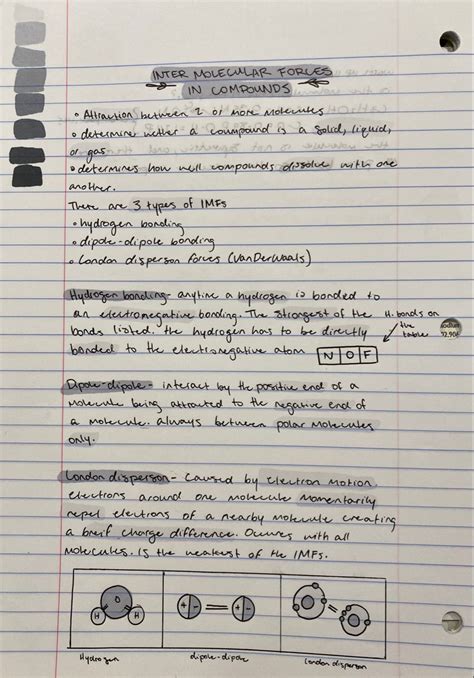 INTER MOLECULAR FORCES
IN COMPOUNDS
• Attraction between 2 or more molecules
• determine wether a coumpound is a solid, liquid,
or gas
• determines how well compounds dissolve with one
another.
There are 3 types of IMFs
• hydrogen bonding
• dipole-dipole bonding
• London dispersion forces (VanDerWaals)
Hydrogen bonding - anytime a hydrogen is bonded to
an electronegative bonding. The strongest of the
bonds listed. the hydrogen has to be directly
bonded to the electronegative atom
H. bonds on
the
table
N O F
sodium
22.990
Dipole-dipole - interact by the positive end of a
molecule being attracted to the negative end of
a molecule. always between polar molecules
only.
London disperson - Caused by electron motion.
electrons around one molecule momentarily
repel electrons of a nearby molecule creating
a breif charge difference. Occures with all
molecules. is the weakest of the IMFs.
O
H H
+ - + -
Hydrogen
dipole-dipole
london disperson